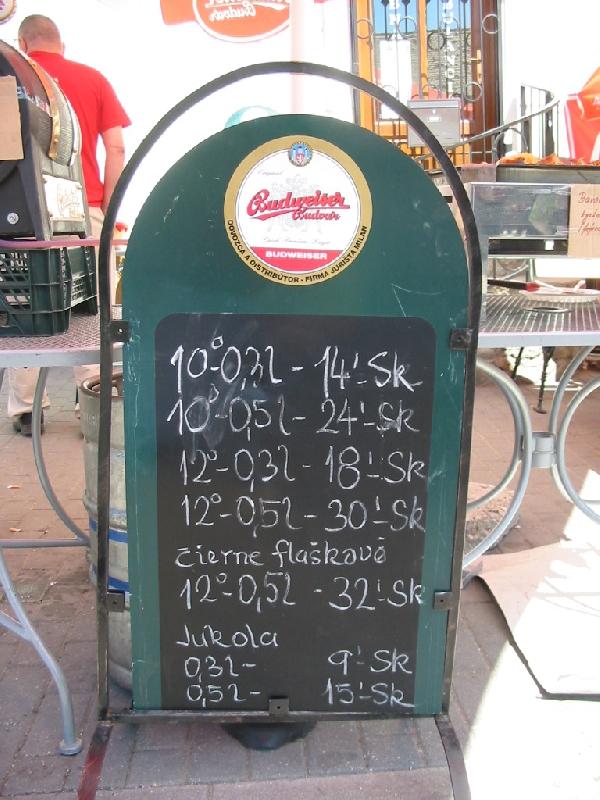 Budvar
Original
Budweiser
Budvar
Czech Premium Lager
BUDWEISER
DOVOZCA A DISTRIBÚTOR - FIRMA JURIŠTA MILAN
10°-0,3l - 14'-Sk
10°-0,5l - 24'-Sk
12°-0,3l - 18'-Sk
12°-0,5l - 30'-Sk
čierne flaškové
12°-0,5l - 32'-Sk
Jukola
0,3l - 9'-Sk
0,5l - 15'-Sk